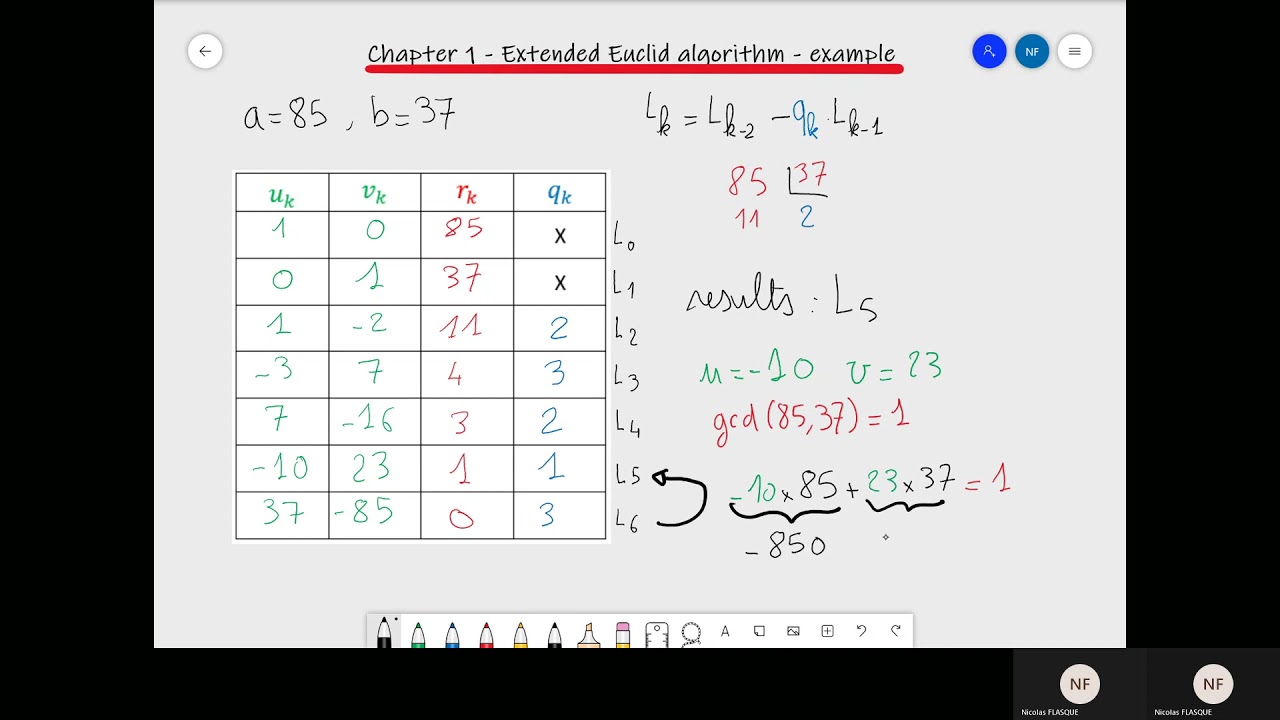 Chapter 1 - Extended Euclid algorithm - example
NF
a = 85 , b = 37
L_k = L_{k-2} - q_k . L_{k-1}
85 37
11 2
u_k v_k r_k q_k
1 0 85 x L_0
0 1 37 x L_1
1 -2 11 2 L_2
-3 7 4 3 L_3
7 -16 3 2 L_4
-10 23 1 1 L_5
37 -85 0 3 L_6
results : L_5
u = -10 v = 23
gcd (85, 37) = 1
-10 x 85 + 23 x 37 = 1
- 850
A
NF NF
Nicolas FLASQUE Nicolas FLASQUE